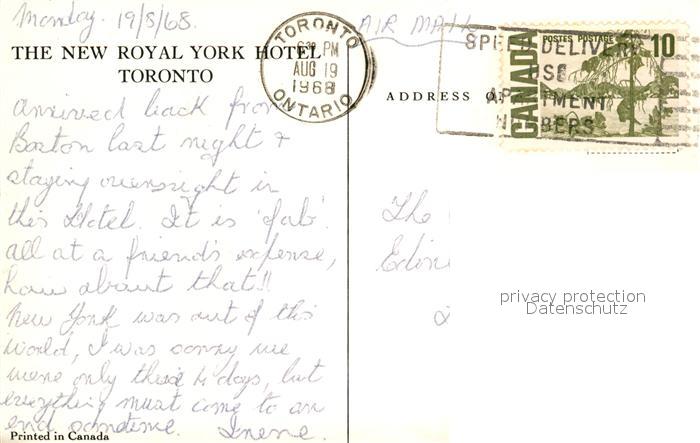 Monday. 19/8/68.
AIR MAIL
THE NEW ROYAL YORK HOTEL
TORONTO
TORONTO
6 30 PM
AUG 19
1968
ONTARIO
SPEED DELIVERY
USE
AP TMENT
N BERS
POSTES POSTAGE
10
CANADA
ADDRESS O
arrived back from
Boston last night &
staying overnight in
this Hotel. It is 'fab'.
all at a friend's expense,
how about that!!
New York was out of this
world, I was sorry we
were only there 4 days, but
everything must come to an
end sometime.
The
Edin
privacy protection
Datenschutz
Printed in Canada